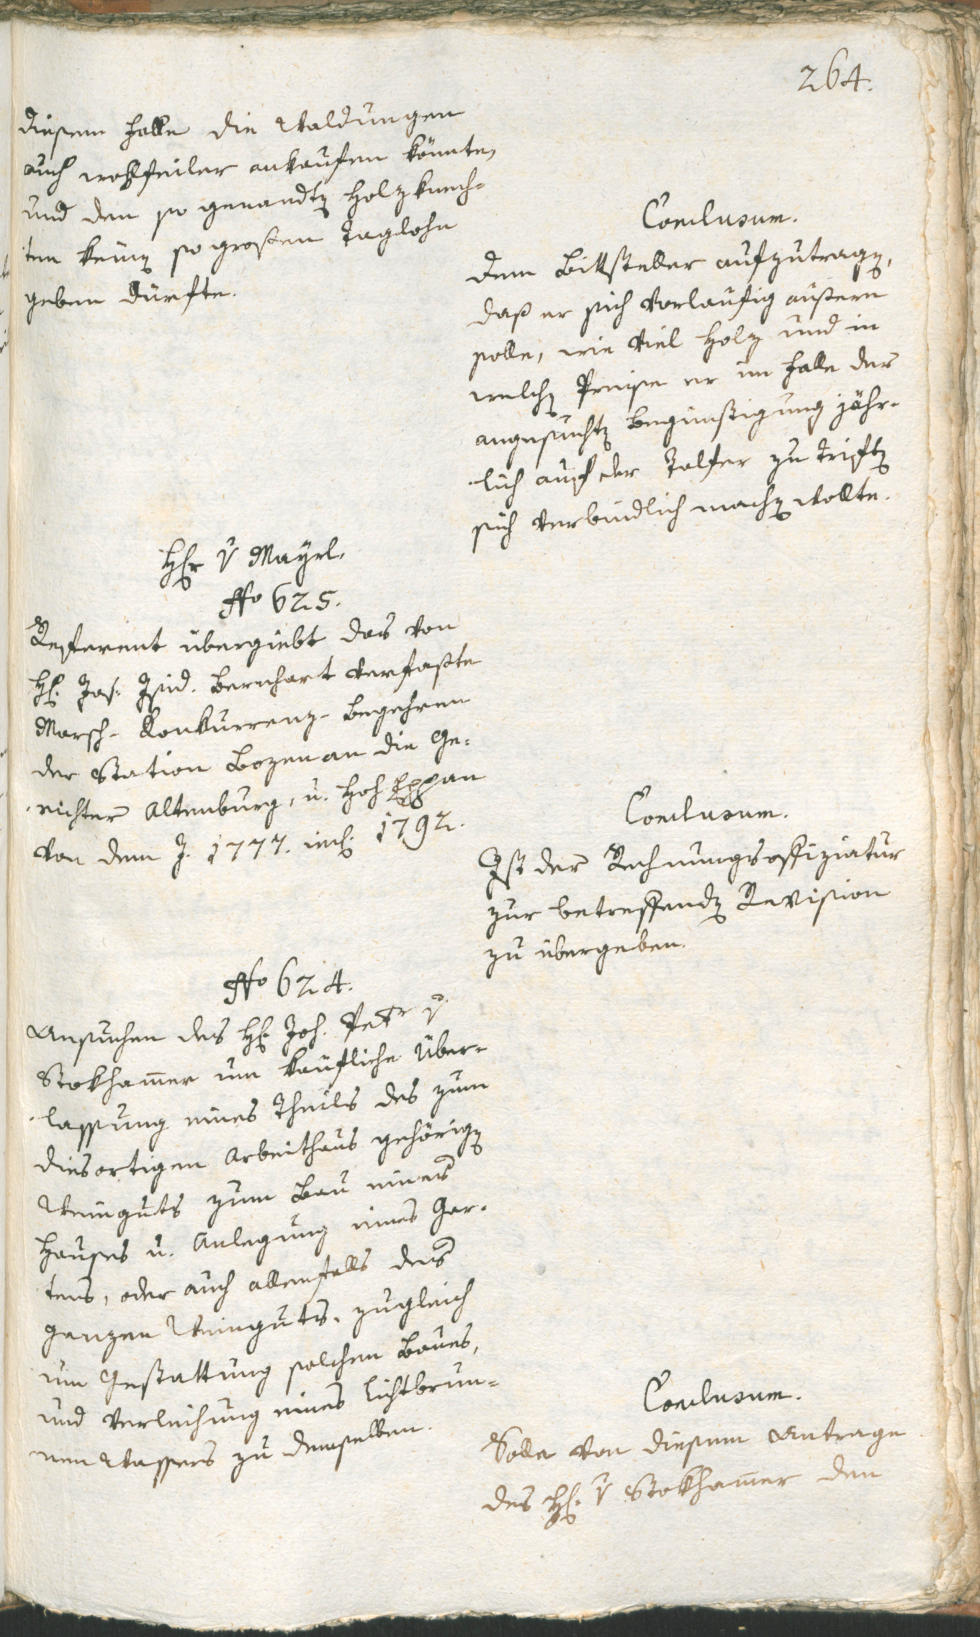 264.
diesem Falle die Waldungen
auch wohlfeiler ankaufen könnte,
und den so genandten Holzknech-
ten keinen so großen Taglohn
geben dürfte.
Conclusum.
Dem Bittsteller aufzutragen,
daß er sich vorläufig äußern
solle, wie viel Holz und in
welchen Preise er im Falle der
angesuchten Begünstigung jähr-
lich auf der Talfer zu triften
sich verbindlich machen wollte.
Hr v Mayrl.
No 625.
Referent übergiebt das von
H. Jos. Isid. Bernhart verfaßte
Marsch-Konkurrenz-Begehren
der Station Bozen an die Ge-
richter Altenburg, u. Hoch Eppan
von dem J. 1777. incl. 1792.
Conclusum.
Ist der Rechnungsoffiziatur
zur betreffenden Revision
zu übergeben.
No 624.
Ansuchen des H. Joh. Petr v
Stokhamer um käufliche Über-
lassung eines Theils des zum
diesortigen Arbeithaus gehörigen
Weinguts zum Bau eines
Hauses u. Anlegung eines Gar-
tens, oder auch allenfalls des
ganzen Weinguts, zugleich
um Gestattung solchen Baues,
und Verleihung eines Lichtbrun-
nen Wassers zu demselben.
Conclusum.
Solle von diesem Antrage
des H. v Stokhamer den